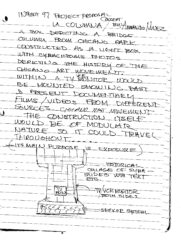 INTENT OF PROJECT PROPOSAL
CONCEPT
LA COLUMNA / BY
A BOX DEPICTING A BRIDGE
COLUMN FROM CHICANO PARK
CONSTRUCTED AS A LIGHT BOX
WITH PHOTOS
DEPICTING THE HISTORY OF THE
CHICANO ART MOVEMENT.
WITHIN A TV MONITOR WOULD
BE MOUNTED SHOWING PAST
& PRESENT DOCUMENTAL
FILMS/VIDEOS FROM DIFFERENT
SOURCES
THE CONSTRUCTION ITSELF
WOULD BE OF MODULAR
NATURE SO IT COULD TRAVEL
THROUGHOUT
ITS MAIN PURPOSE IS EXPOSURE
HISTORICAL
COLLAGE OF
SLIDES WITH TEXT
ETC.
TV MONITOR
SYSTEM